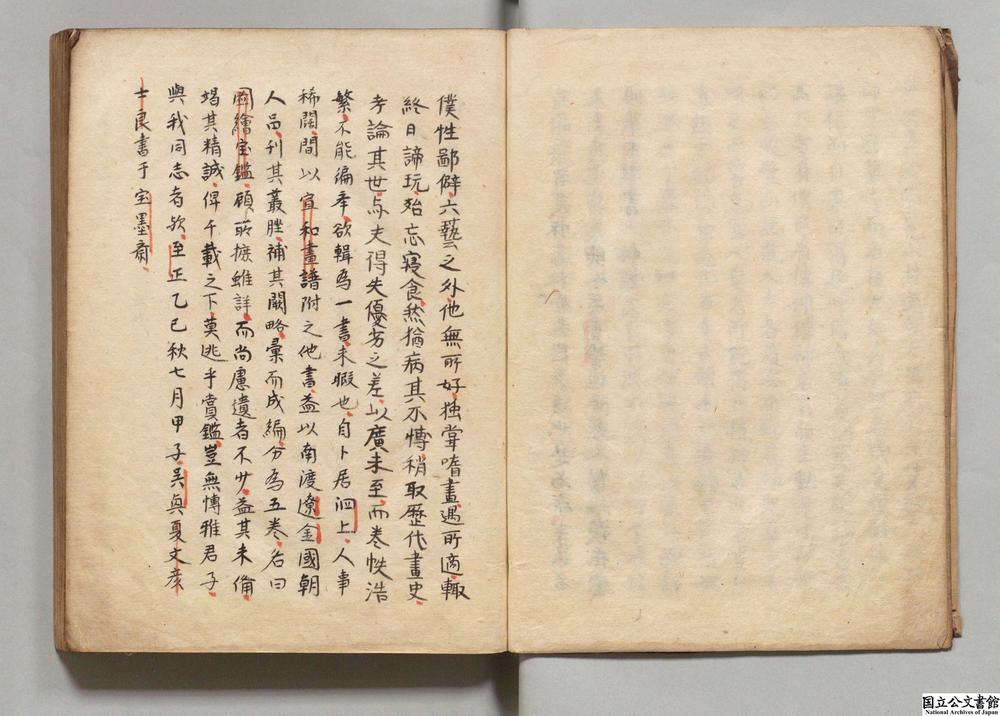 僕性鄙僻六藝之外他無所好独嘗嗜畫遇所適輙
終日諦玩殆忘寝食然猶病其不愽稍取歴代畫史
考論其世与夫得失優劣之差以廣未至而巻帙浩
繁不能徧奉欲輯為一書未暇也自卜居泗上人事
稀闊間以宣和畫譜附之他書益以南渡遼金國朝
人品刊其叢脞補其闕略彙而成編分為五巻名曰
圖繪宝鑑顧蒐摭雖詳而尚慮遺者不少益其未備
竭其精誠俾千載之下莫逃乎賞鑑豈無愽雅君子
與我同志者欤至正乙巳秋七月甲子呉興夏文彦
士良書于宝墨齋
国立公文書館
National Archives of Japan